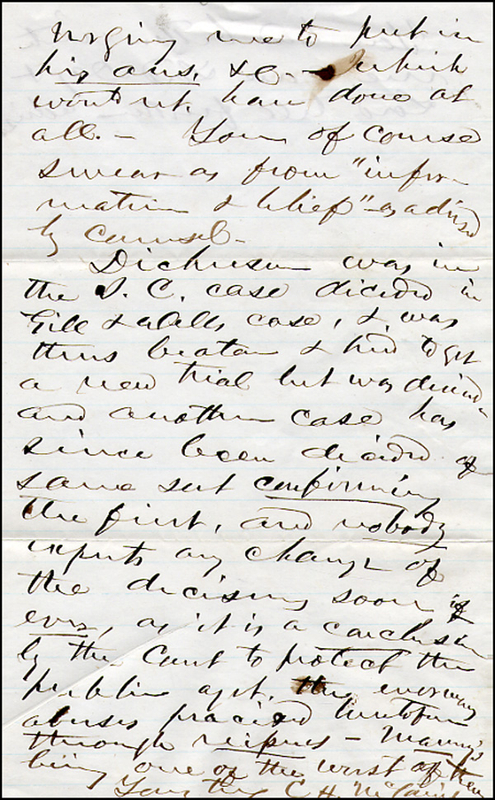 urging me to put in
his ans, &c - which
wont uh have done at
all. - You of course
swear as from "infor
mation & belief" - as advised
by counsel -
Dickinson was in
the S. C. case decided in
Gill & Wells case, & was
thus beaten & tried to get
a new trial but was denied
and another case has
since been decided of
same sort confirming
the first, and nobody
expects any change of
the decisions soon if
ever, as it is a conclusion
by the Court to protect the
public agst. the
abuses practiced heretofore
through reissues - Manny's
being one of the worst of them
Yours truly C. H.